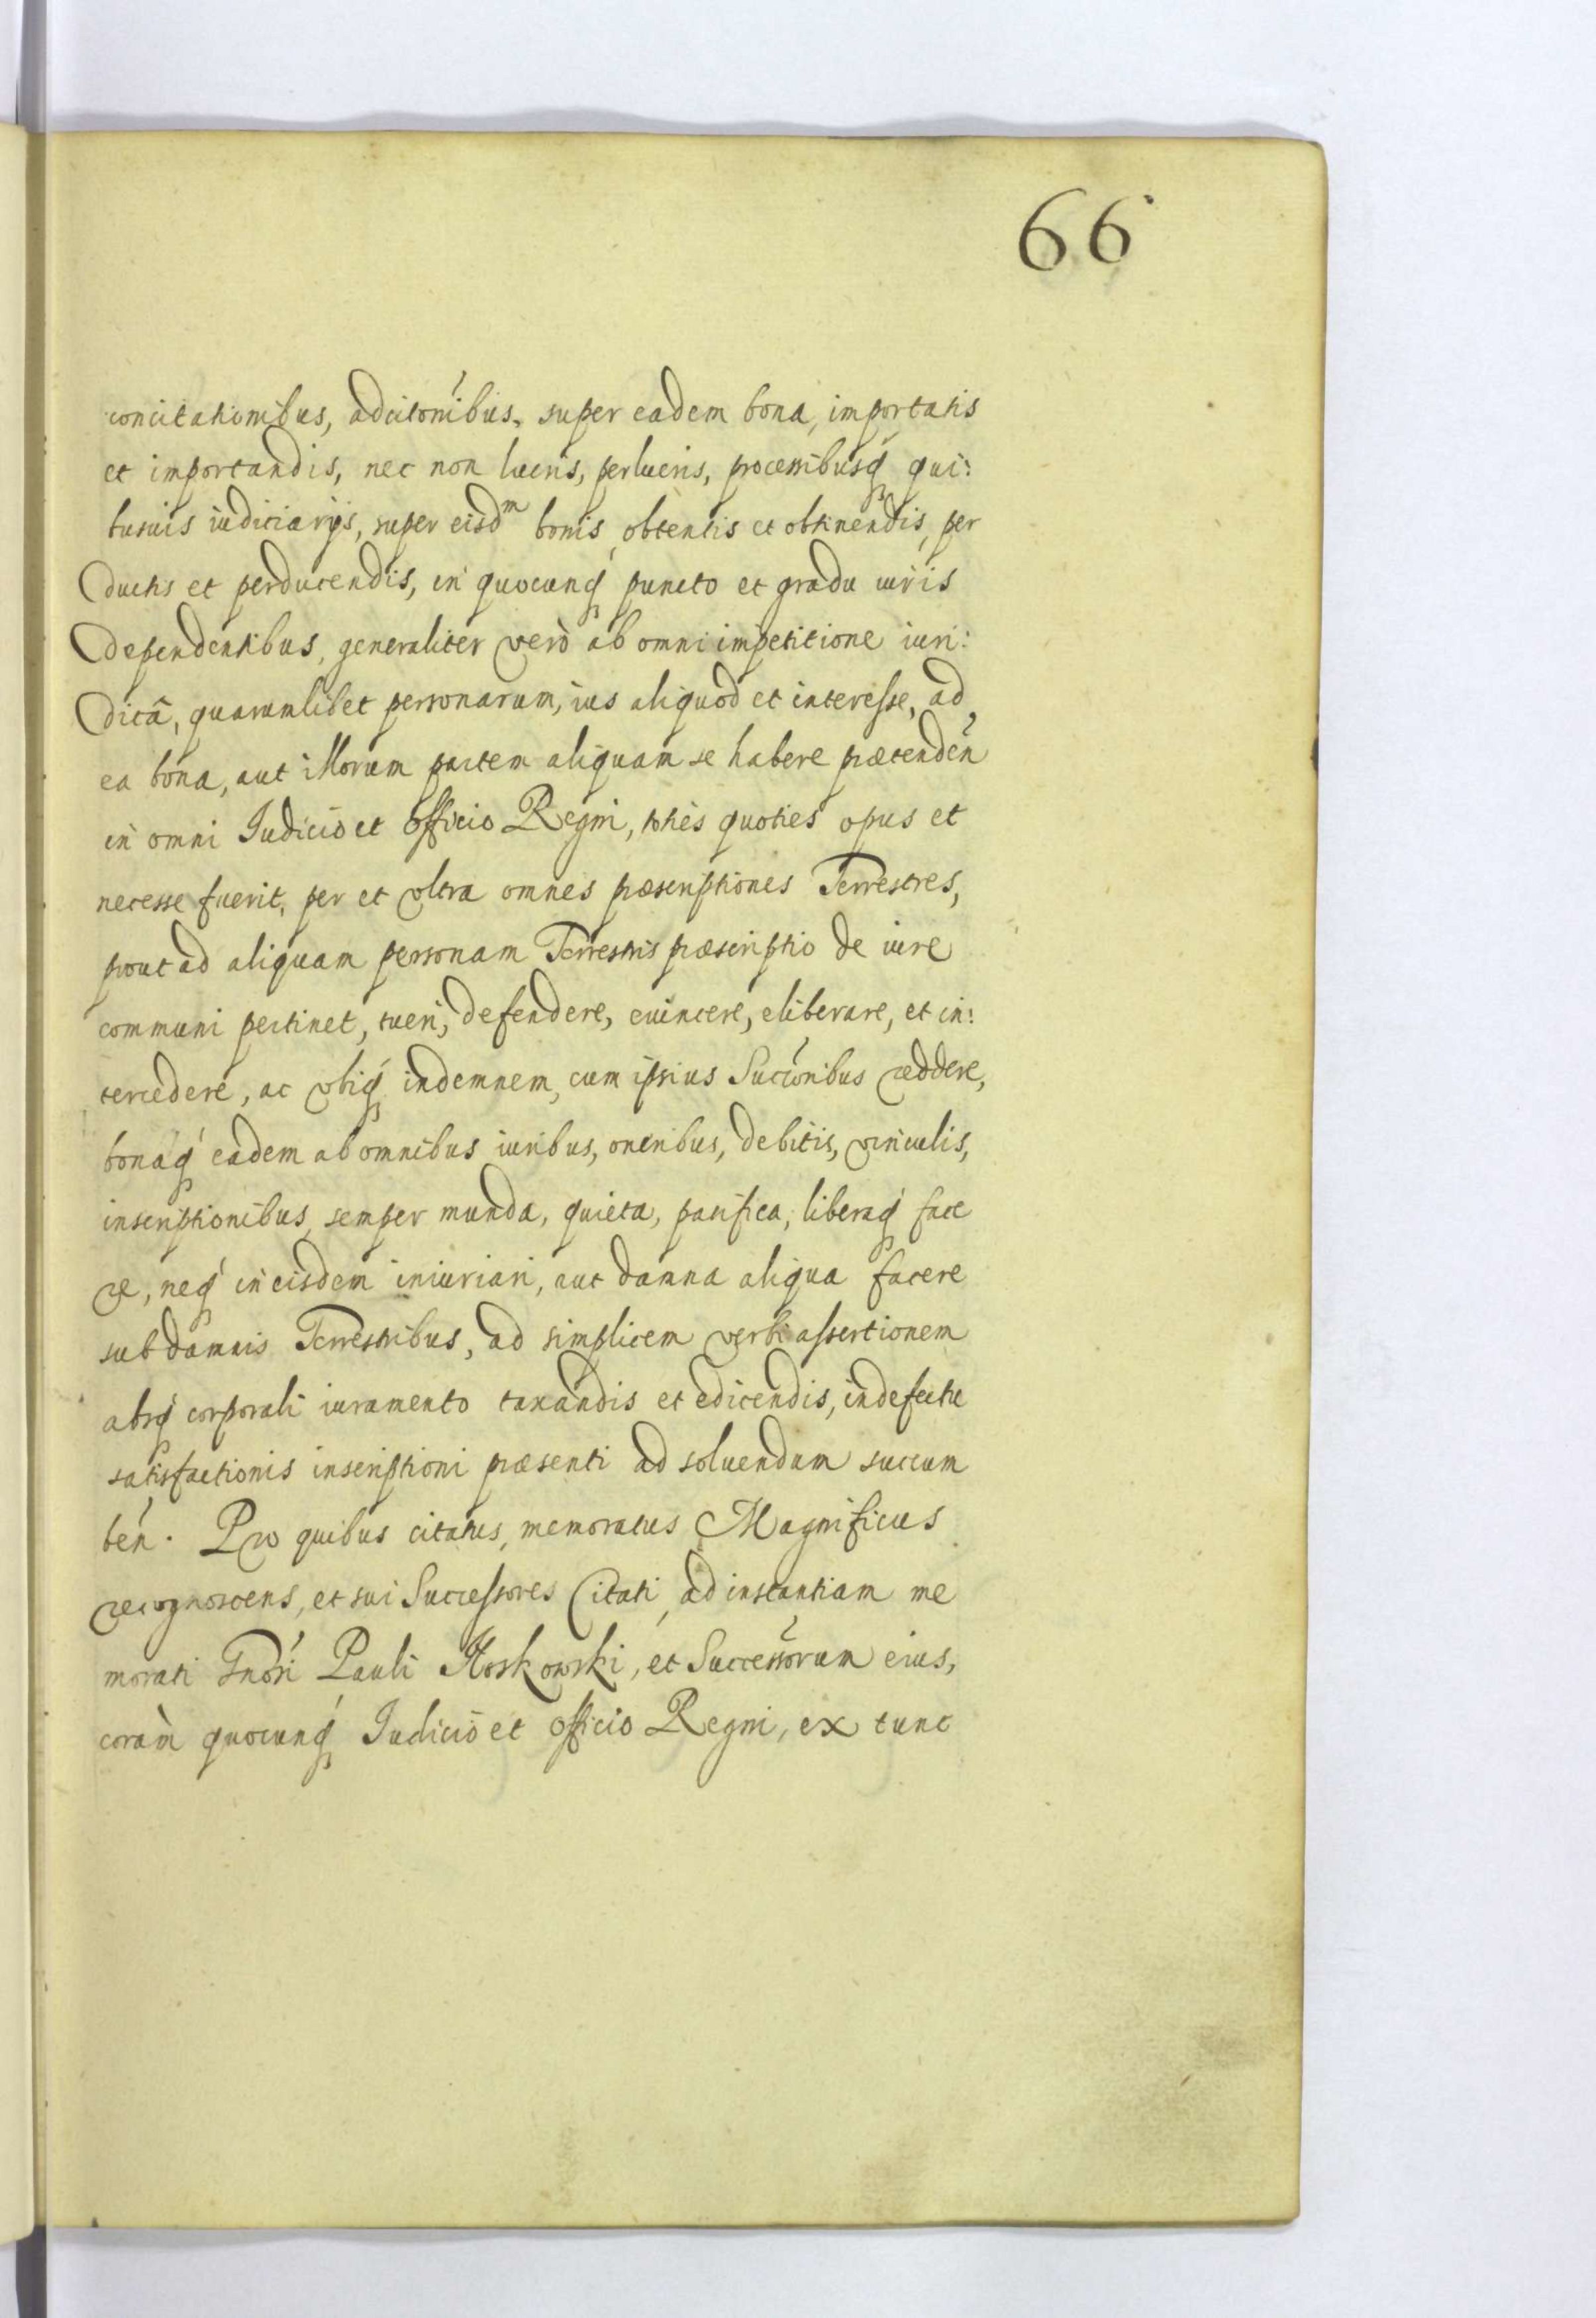 66
concitationibus, adcitoñibus, super eadem bona, importatis
et importandis, nec non lucris, perlucris, processibusq́ qui:
busuis iudiciarijs, super eisdᵐ bonis, obtentis et obtinendis, per
ductis et perducendis, in quocunq́ puncto et gradu iuris
dependentibus, generaliter verò ab omni impetitione iuri:
dicâ, quarumlibet personarum, ius aliquod et interesse, ad
ea bona, aut illorum partem aliquam se habere prætendeñ
in omni Iudicio et officio Regni, toties quoties opus et
necesse fuerit, per et vltra omnes præscriptiones Terrestres,
prout ad aliquam personam Terrestris præscriptio de iure
communi pertinet, tueri, defendere, euincere, eliberare, et in:
tercedere, ac vbiq́ indemnem, cum ipsius Succoribus reddere,
bonaq́ eadem ab omnibus iuribus, oneribus, debitis, vinculis,
inscriptionibus, semper munda, quieta, pacifica, liberaq́ face
re, neq́ in eisdem iniuriari, aut damna aliqua facere
sub damnis Terrestribus, ad simplicem verbi assertionem
absq́ corporali iuramento taxandis et edicendis, in defectu
satisfactionis inscriptioni præsenti ad soluendum succum
beń. Pro quibus citatus, memoratus Magnificus
recognoscens, et sui Successores Citati, ad instantiam me
morati Gnosi Pauli Koskowski, et Successorum eius,
coràm quocunq́ Iudicio et officio Regni, ex tunc